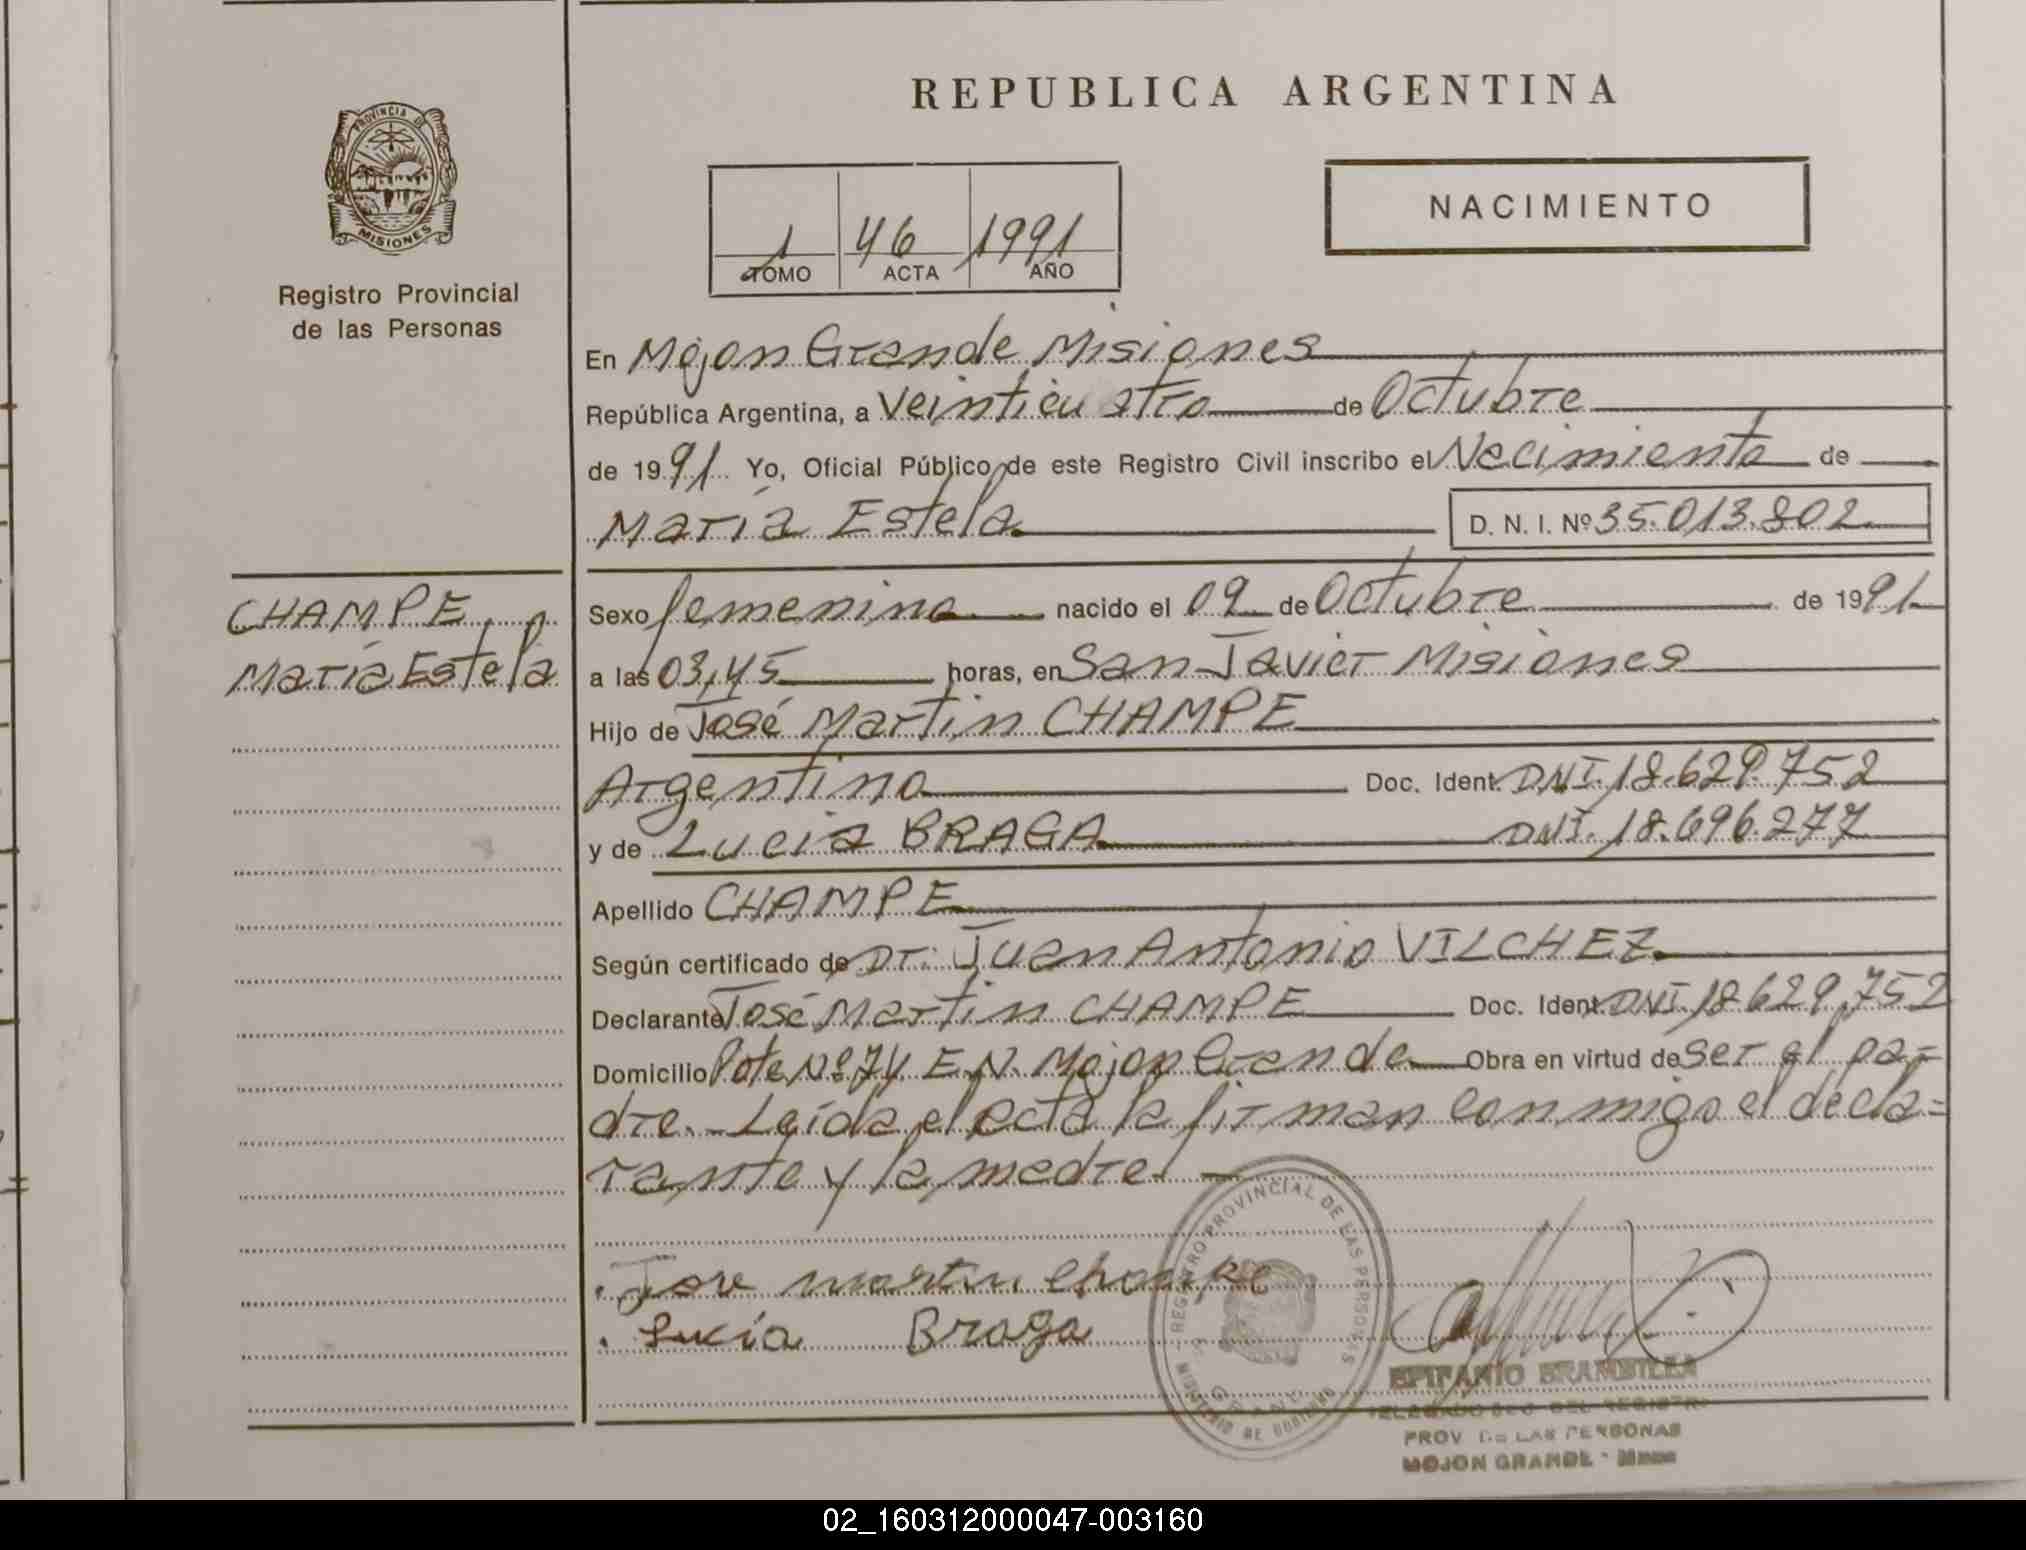 REPUBLICA ARGENTINA
PROVINCIA DE
MISIONES
Registro Provincial
de las Personas
1 46 1991
TOMO ACTA AÑO
NACIMIENTO
En Mojon Grande Misiones
República Argentina, a Veinticuatro de Octubre
de 1991 Yo, Oficial Público de este Registro Civil inscribo el Nacimiento de
María Estela D. N. I. Nº 35.013.802
CHAMPE,
María Estela
Sexo femenino nacido el 09 de Octubre de 1991
a las 03,45 horas, en San Javier Misiones
Hijo de José Martin CHAMPE
Argentino Doc. Ident. DNI. 18.629.752
y de Lucia BRAGA DNI. 18.696.277
Apellido CHAMPE
Según certificado de Dr. Juan Antonio VILCHEZ
Declarante José Martin CHAMPE Doc. Ident. DNI 18.629.752
Domicilio Nº 74 E.N. Mojon Grande Obra en virtud de ser el pa-
dre. Leída el acta la firman conmigo el decla=
rante y la madre.
Jose martin champe
Lucía Braga
REGISTRO PROVINCIAL DE LAS PERSONAS
MINISTERIO DE GOBIERNO
EPIFANIO BRAMBILLA
PROV. DE LAS PERSONAS
MOJON GRANDE - Mnes
02_160312000047-003160